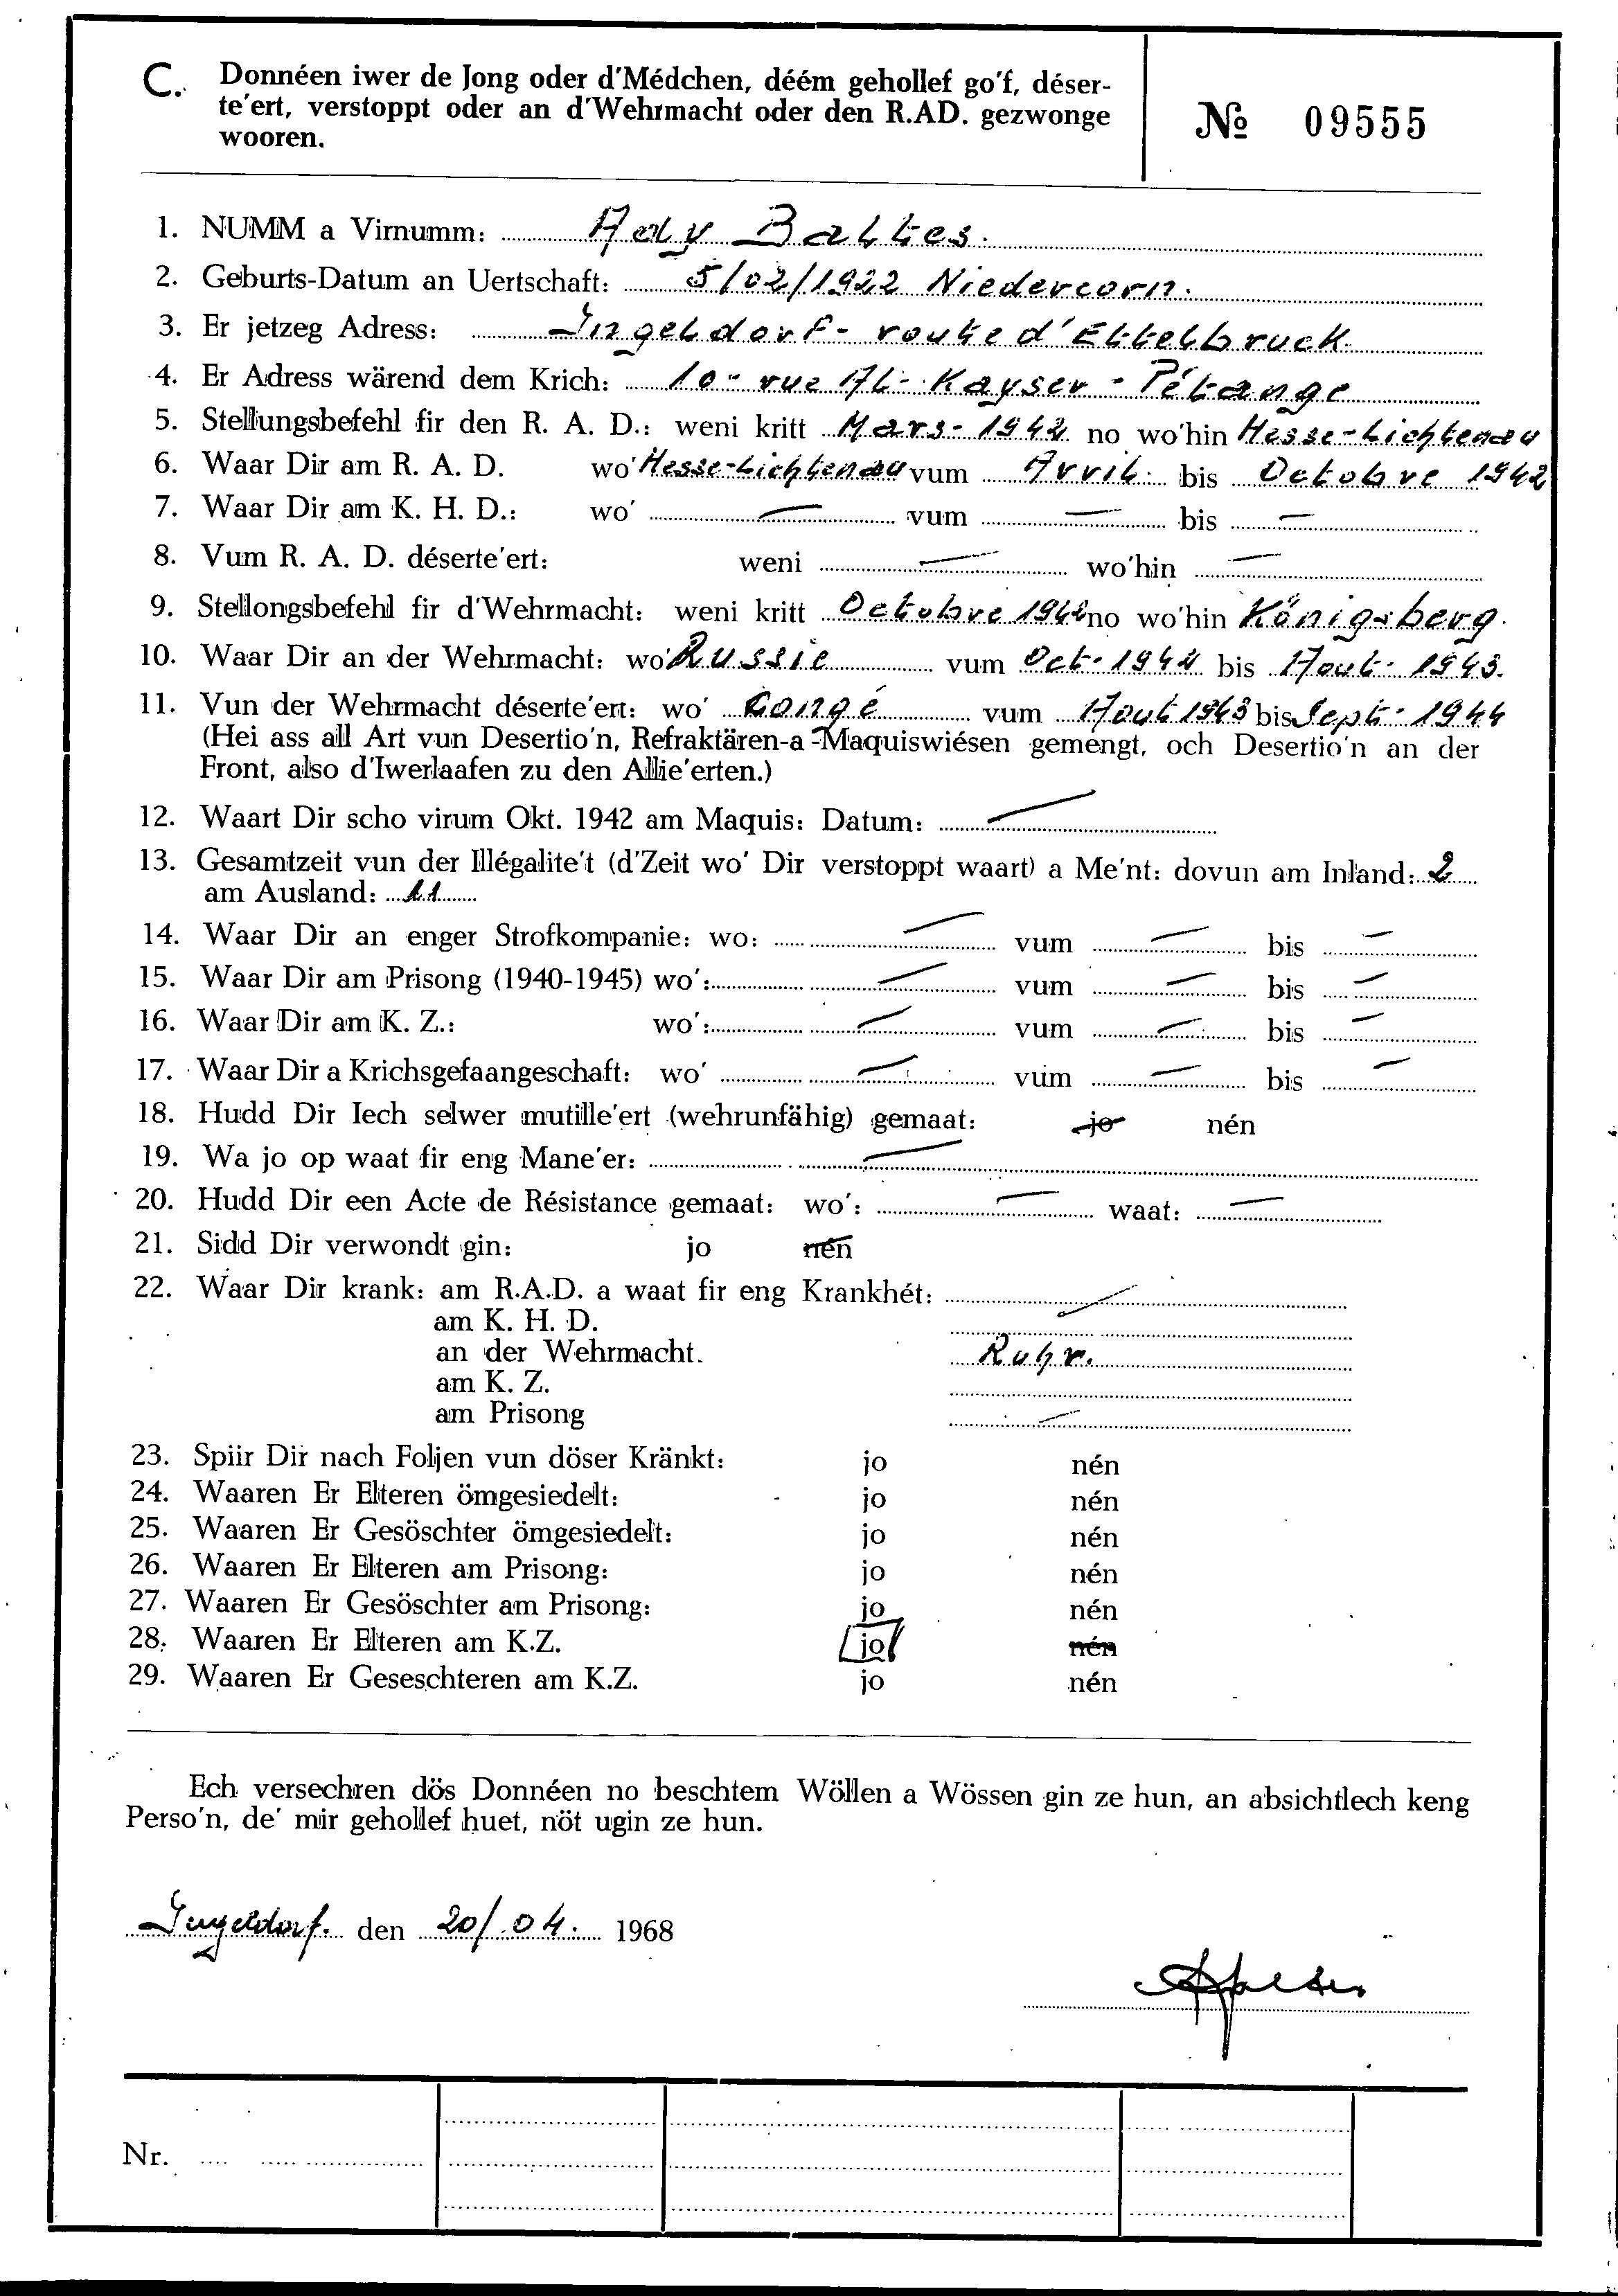 C. Donnéen iwer de Jong oder d'Médchen, déém gehollef go'f, déser-
te'ert, verstoppt oder an d'Wehrmacht oder den R.AD. gezwonge
wooren.
№ 09555
1. NUMM a Virnumm: Ady Baltes.
2. Geburts-Datum an Uertschaft: 5/02/1922 Niedercorn.
3. Er jetzeg Adress: Ingeldorf - route d'Ettelbruck
4. Er Adress wärend dem Krich: 10 - rue Al- Kayser - Pétange
5. Stellungsbefehl fir den R. A. D.: weni kritt Mars - 1942 no wo'hin Hesse-Lichtenau
6. Waar Dir am R. A. D. wo' Hesse-Lichtenau vum Avril bis Octobre 1942
7. Waar Dir am K. H. D.: wo' — vum — bis —
8. Vum R. A. D. déserte'ert: weni — wo'hin —
9. Stellongsbefehl fir d'Wehrmacht: weni kritt Octobre 1942 no wo'hin Königsberg.
10. Waar Dir an der Wehrmacht: wo' Russie vum Oct- 1942 bis Aout- 1943.
11. Vun der Wehrmacht déserte'ert: wo' Congé vum Aout 1943 bis Sept- 1944
(Hei ass all Art vun Desertio'n, Refraktären-a-Maquiswiésen gemengt, och Desertio'n an der
Front, also d'Iwerlaafen zu den Allie'erten.)
12. Waart Dir scho virum Okt. 1942 am Maquis: Datum: —
13. Gesamtzeit vun der Illégalite't (d'Zeit wo' Dir verstoppt waart) a Me'nt: dovun am Inland: 2
am Ausland: 11
14. Waar Dir an enger Strofkompanie: wo: — vum — bis —
15. Waar Dir am Prisong (1940-1945) wo': — vum — bis —
16. Waar Dir am K. Z.: wo': — vum — bis —
17. Waar Dir a Krichsgefaangeschaft: wo' — vum — bis —
18. Hudd Dir Iech selwer mutille'ert (wehrunfähig) gemaat: jo nén
19. Wa jo op waat fir eng Mane'er: —
20. Hudd Dir een Acte de Résistance gemaat: wo': — waat: —
21. Sidd Dir verwondt gin: jo nén
22. Waar Dir krank: am R.A.D. a waat fir eng Krankhét: —
am K. H. D.
an der Wehrmacht. Ruhr.
am K. Z.
am Prisong —
23. Spiir Dir nach Foljen vun döser Kränkt: jo nén
24. Waaren Er Elteren ömgesiedelt: jo nén
25. Waaren Er Gesöschter ömgesiedelt: jo nén
26. Waaren Er Elteren am Prisong: jo nén
27. Waaren Er Gesöschter am Prisong: jo nén
28. Waaren Er Elteren am K.Z. jo nén
29. Waaren Er Geseschteren am K.Z. jo nén
Ech versechren dös Donnéen no beschtem Wöllen a Wössen gin ze hun, an absichtlech keng
Perso'n, de' mir gehollef huet, nöt ugin ze hun.
Ingeldorf. den 20/.04. 1968
ABaltes
Nr.